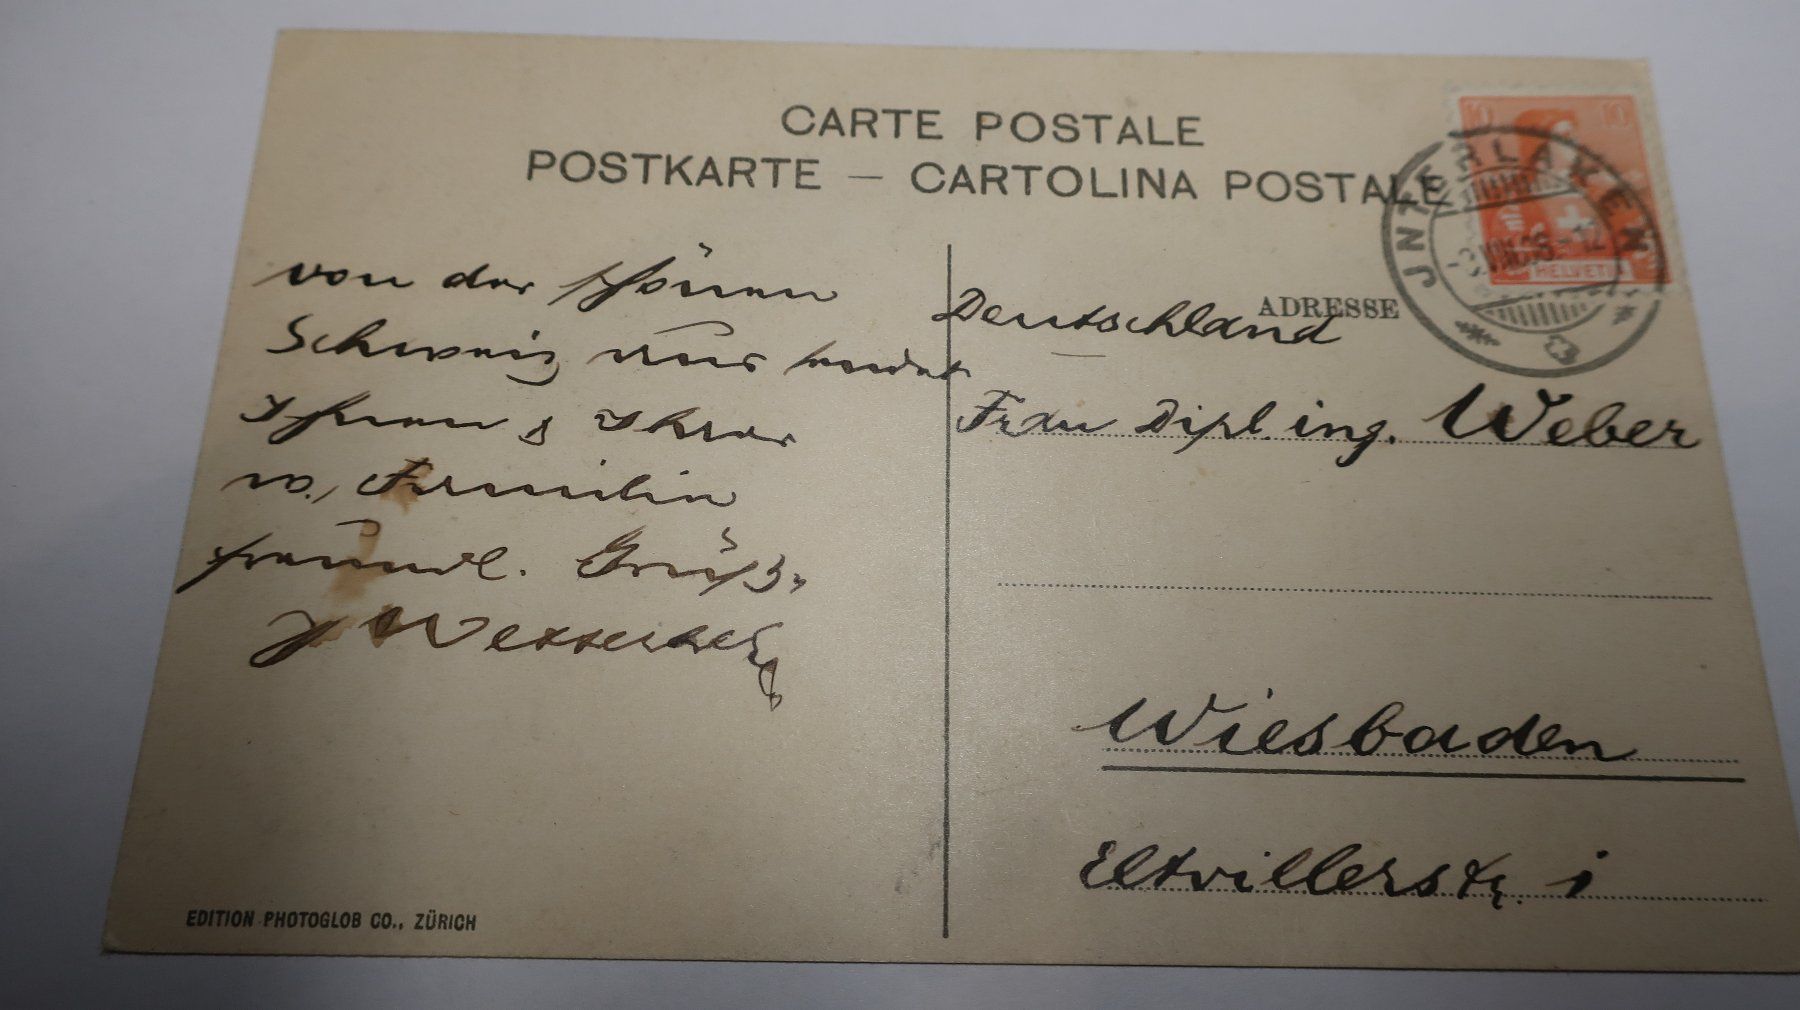 CARTE POSTALE
POSTKARTE — CARTOLINA POSTALE
JNTERLAKEN
10 10
HELVETIA
ADRESSE
von der schönen
Schweiz aus sendet
Ihnen & Ihrer
w. Familie
freundl. Grüße
Deutschland
Frau Dipl. ing. Weber
Wiesbaden
Eltvillerstr. 1
EDITION PHOTOGLOB CO., ZÜRICH